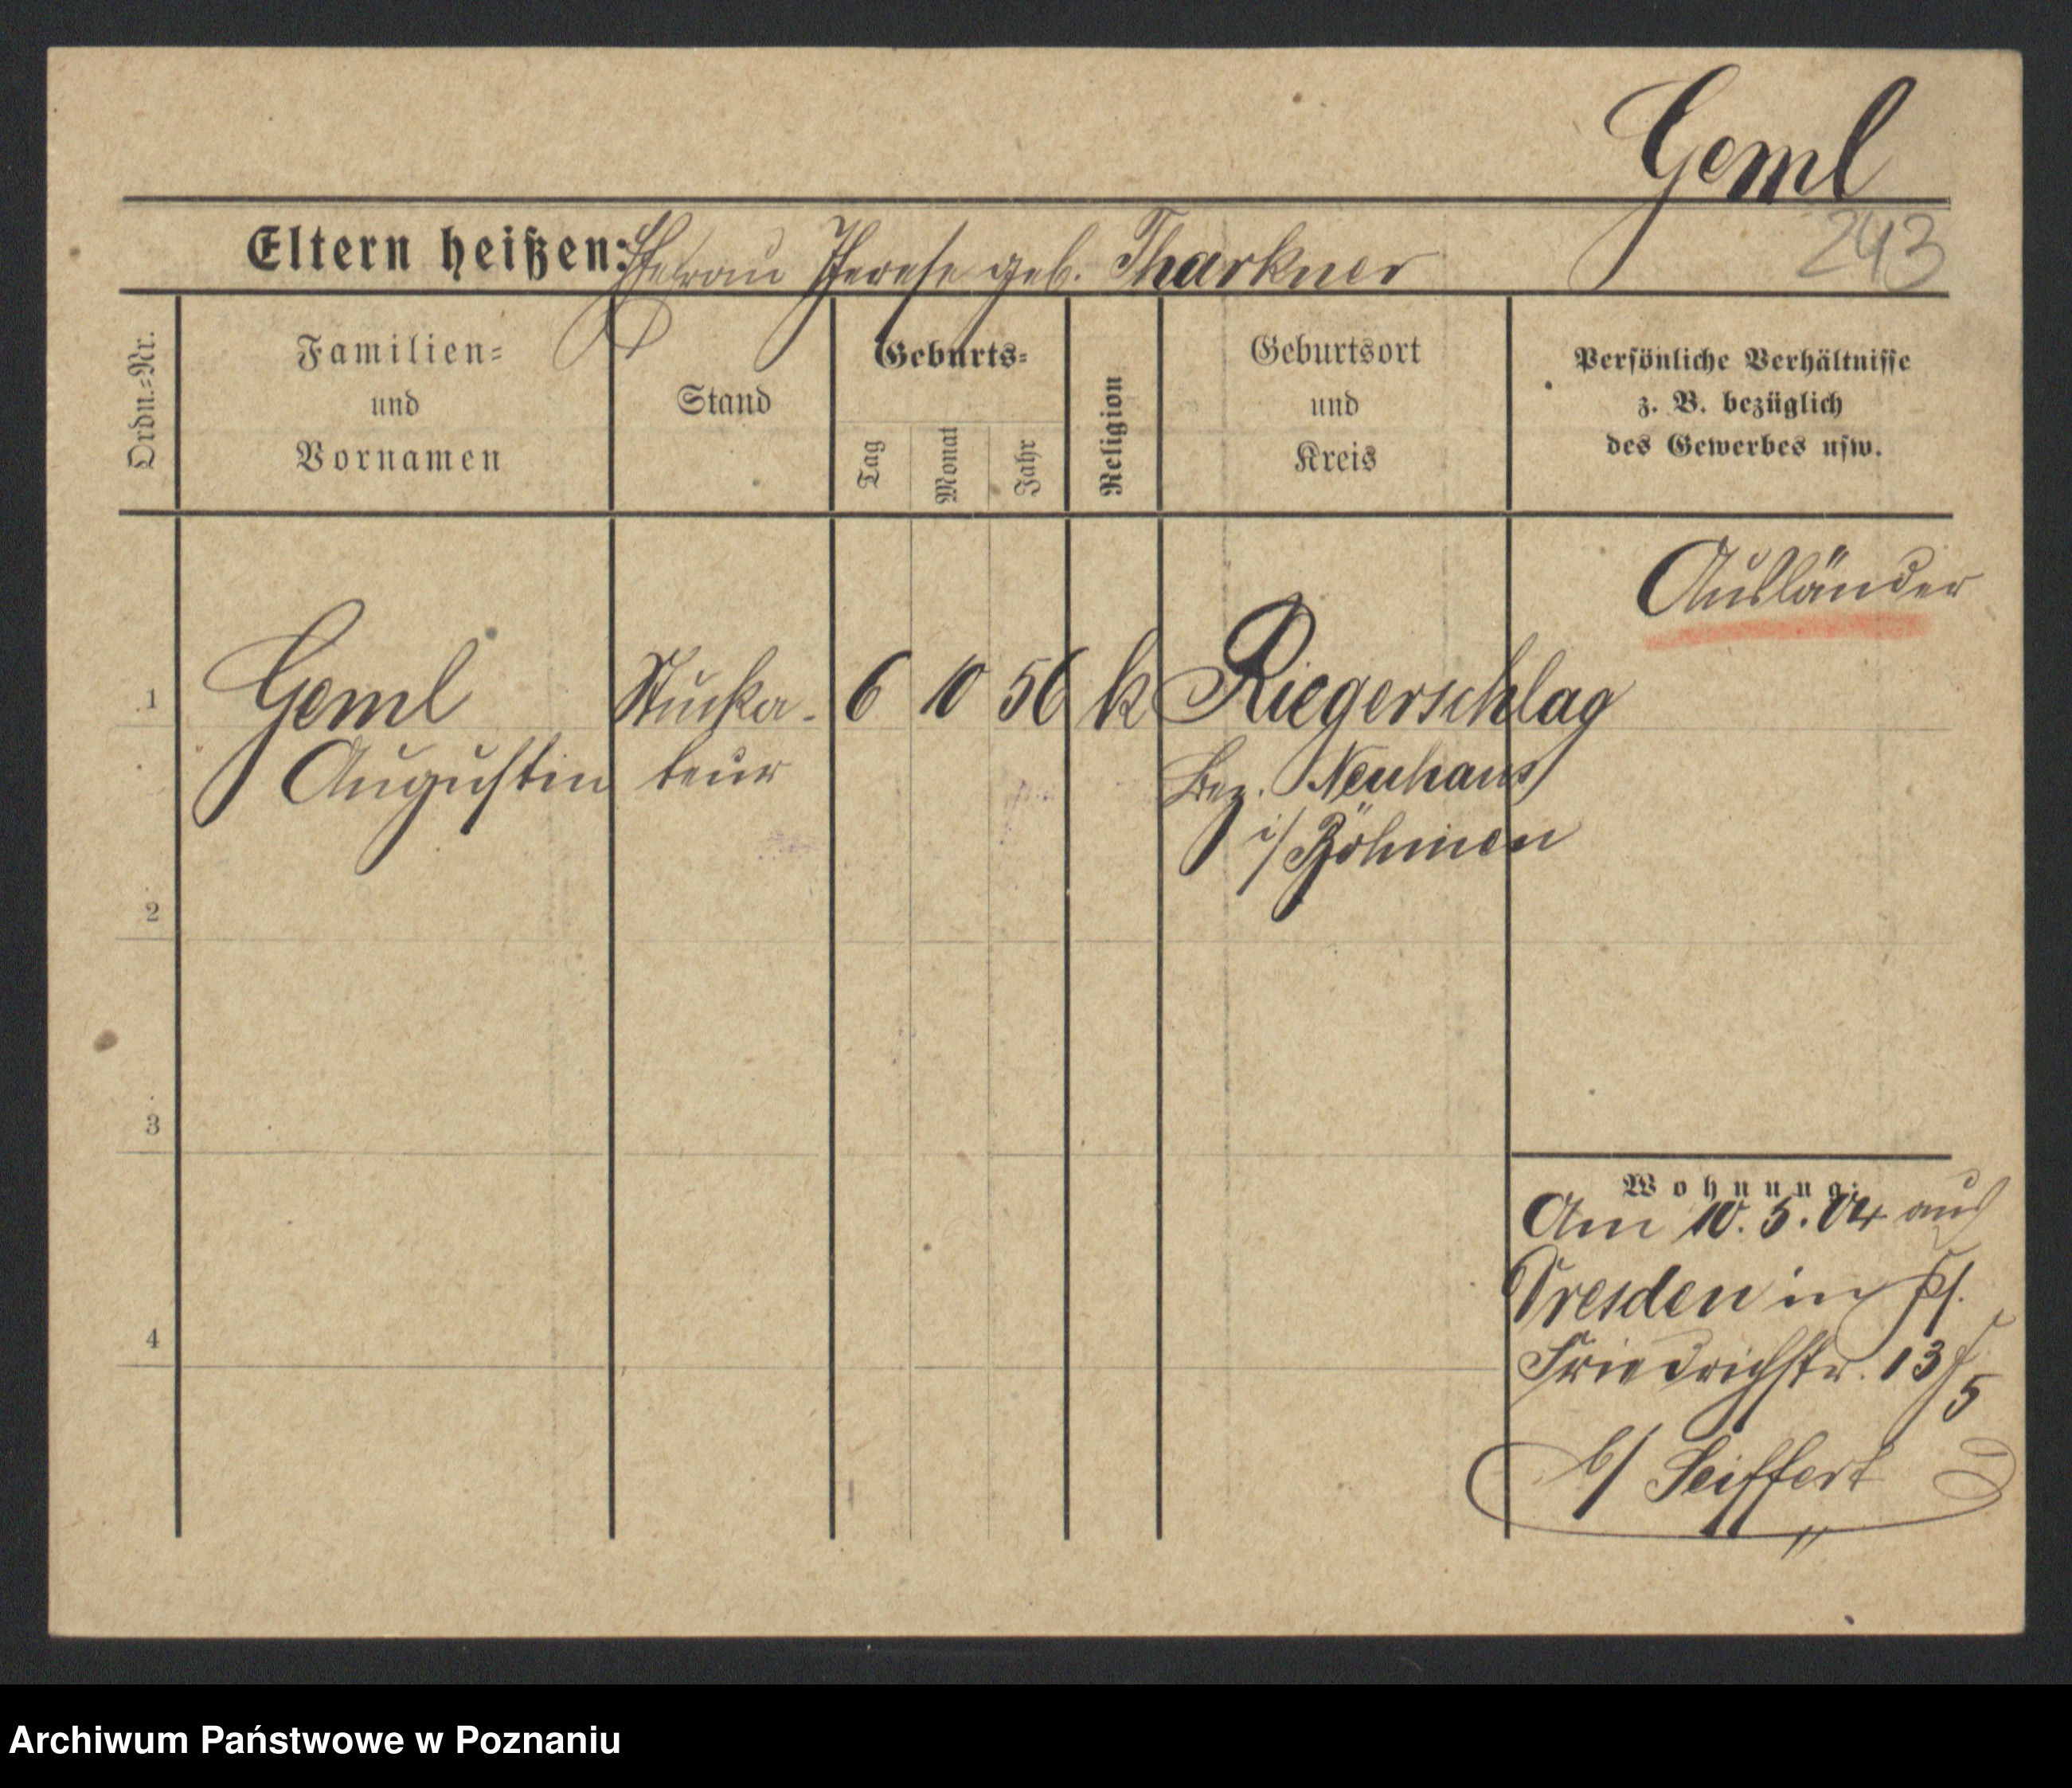 Geml
243
Eltern heißen: Ehefrau Therese geb. Tharkner
Ordn.=Nr.
Familien=
und
Vornamen
Stand
Geburts=
Tag
Monat
Jahr
Religion
Geburtsort
und
Kreis
Persönliche Verhältnisse
z. B. bezüglich
des Gewerbes usw.
Ausländer
1 Geml Stucka- 6 10 56 k Riegerschlag
Augustin teur Bez. Neuhaus
i/ Böhmen
2
3
4
Wohnung:
Am 10. 5. 04 aus
Dresden in
Friedrichstr. 13
5
b/ Seiffert
Archiwum Państwowe w Poznaniu